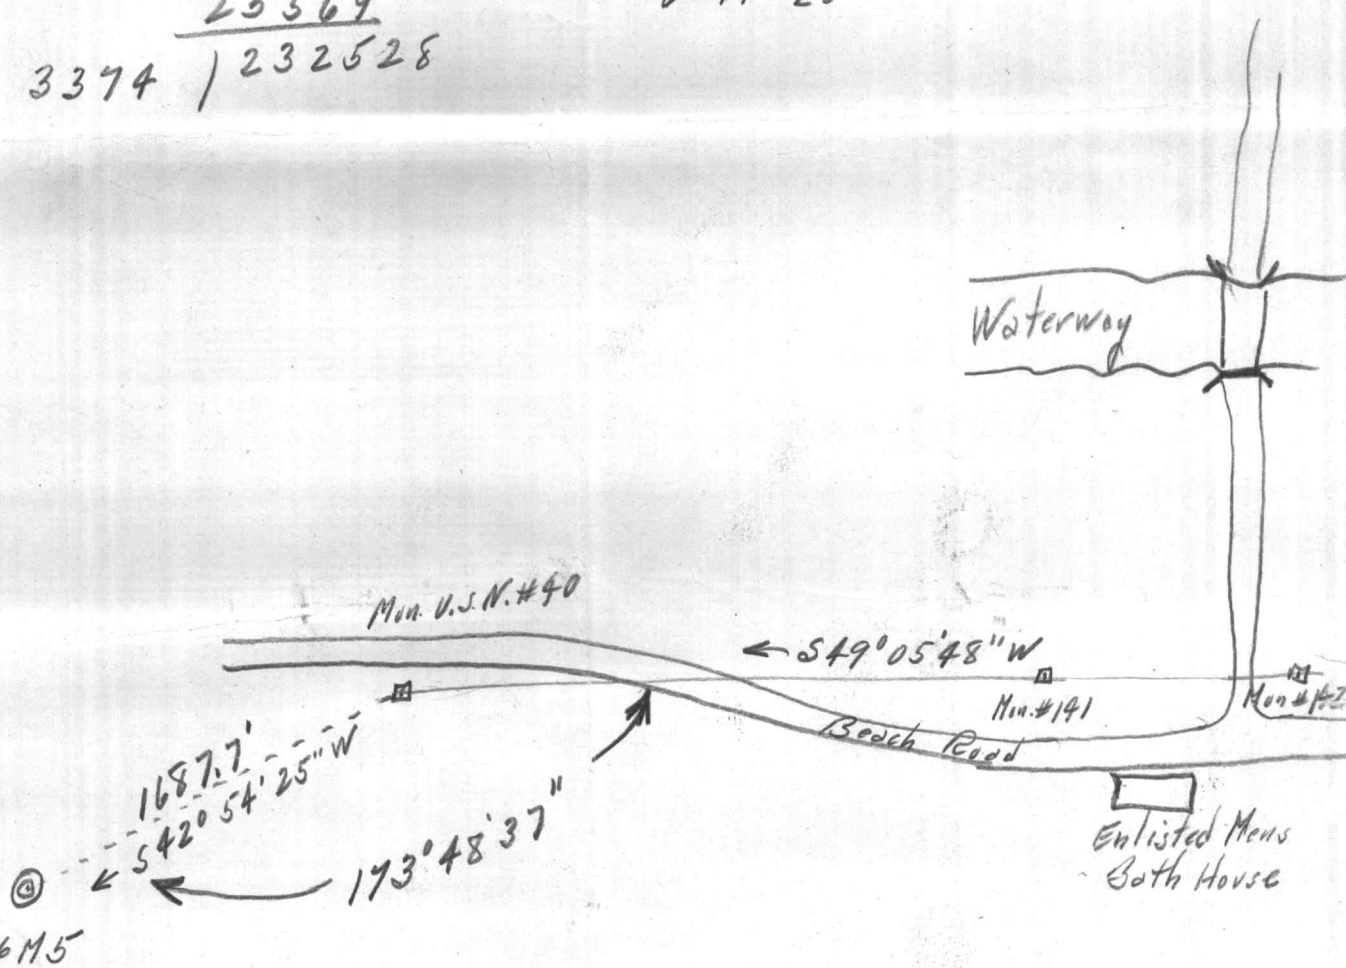 25369
3374 / 232528
Waterway
Mon. U.S.N. #40
← S49°05'48"W
Mon. #141
Mon #142
Beach Road
1687.7'
S42°54'25"W
173°48'37"
Enlisted Mens
Bath House
M5